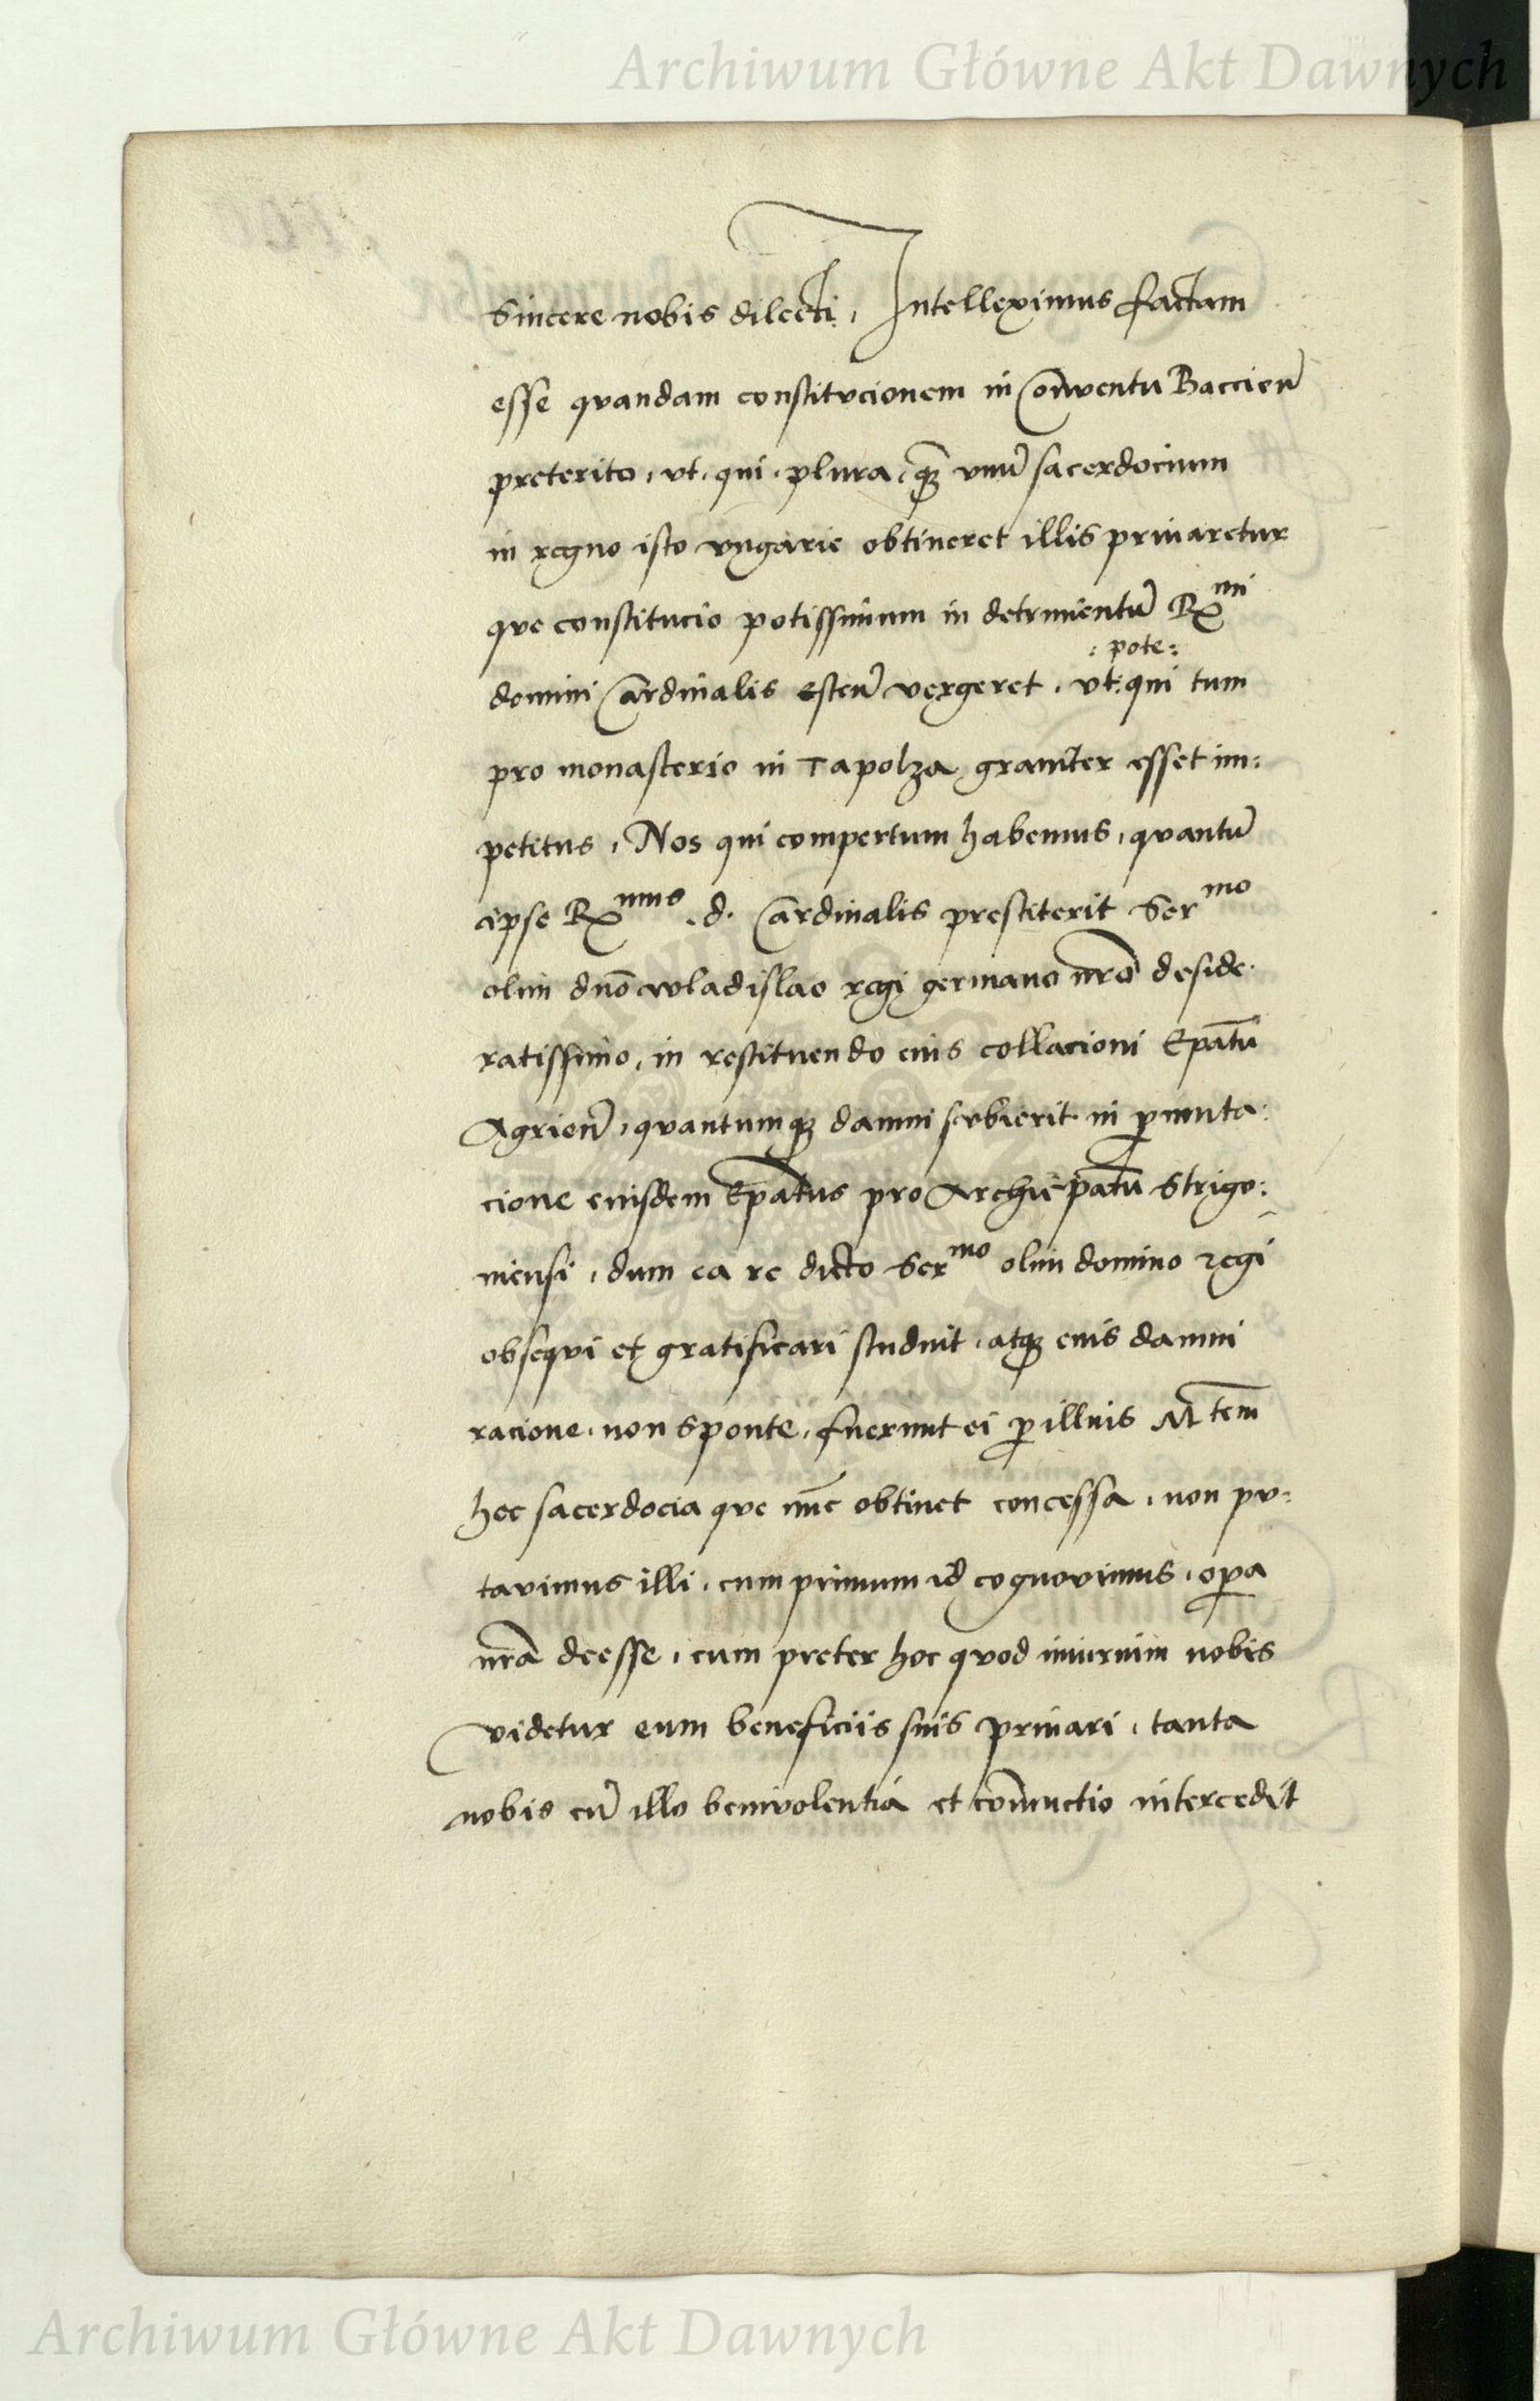 Archiwum Główne Akt Dawnych
Sincere nobis dilecti, Intelleximus factam
esse quandam constitucionem in Conventu Baccien̄
preterito, vt, qui, plura, qꝫ̄ vnū sacerdocium
in regno isto vngarie obtineret illis priuaretur
que constitucio potissimum in detrimentū Rx^mi
: pote :
domini Cardinalis esten̄ vergeret, vt: qui tum
pro monasterio in Tapolza grauiter esset im:
petitus, Nos qui compertum habemus, quantū
ipse Rx^mus .d. Cardinalis prestiterit Ser^mo
olim dnō wladislao regi germano nrō deside:
ratissimo, in restituendo eius collacioni Epatū
Agrien̄, quantumqꝫ damni subierit in ꝑmuta:
cione eiusdem Epatus pro Archiepatu Strigo:
niensi, dum ea re dicto Ser^mo olim domino regi
obsequi et gratificari studuit, atqꝫ eius damni
racione, non sponte, fuerunt ei ꝑ illius M^tem
hec sacerdocia que nūc obtinet concessa, non pu:
tauimus illi, cum primum id cognouimus, oꝑa
nrā deesse, cum preter hoc quod iniurium nobis
videtur eum beneficiis suis priuari, tanta
nobis cū illo beniuolentia et coniunctio intercedit
Archiwum Główne Akt Dawnych